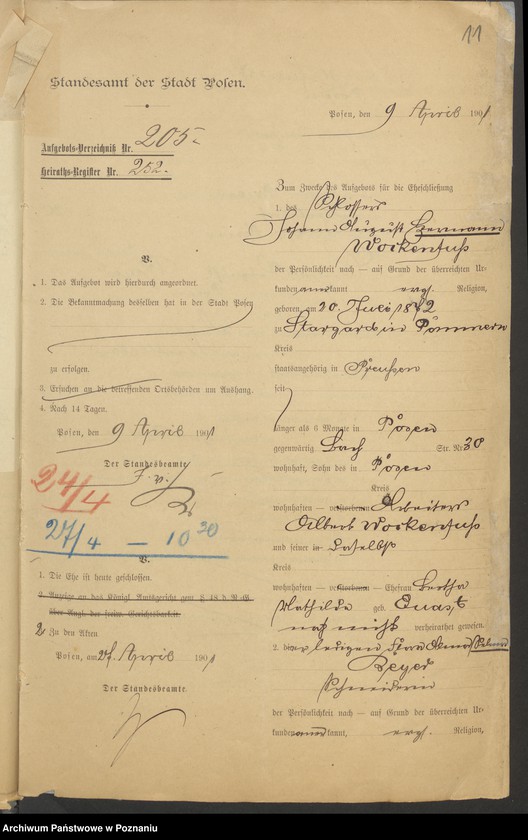 11
Standesamt der Stadt Posen.
Posen, den 9 April 1901
Aufgebots-Verzeichniß Nr. 205
Heiraths-Register Nr. 252.
V.
1. Das Aufgebot wird hierdurch angeordnet.
2. Die Bekanntmachung desselben hat in der Stadt Posen
zu erfolgen.
3. Ersuchen an die betreffenden Ortsbehörden um Aushang.
4. Nach 14 Tagen.
Posen, den 9 April 1901
Der Standesbeamte
J. V.
24/4
27/4 — 10 30
V.
1. Die Ehe ist heute geschlossen.
2. Anzeige an das Königl. Amtsgericht gem. § 48 d. R.-G.
über Angl. der freiw. Gerichtsbarkeit
2 Zu den Akten
Posen, am 27. April 1901
Der Standesbeamte.
Zum Zwecke des Aufgebots für die Eheschließung
1. des Schlossers
Johann August Hermann
Wockenfuß
der Persönlichkeit nach — auf Grund der überreichten Ur-
kunden anerkannt evgl. Religion,
geboren am 20. Juli 1872
zu Stargard in Pommern
Kreis
staatsangehörig in Preußen
seit
länger als 6 Monate in Posen
gegenwärtig Bach Str. Nr. 20
wohnhaft, Sohn des in Posen
Kreis
wohnhaften — verstorbenen Arbeiters
Albert Wockenfuß
und seiner in daselbst
Kreis
wohnhaften — verstorbenen — Ehefrau Bertha
Mathilde geb. Quast
noch nicht verheirathet gewesen.
2. der ledigen
Beyer
Schneiderin
der Persönlichkeit nach — auf Grund der überreichten Ur-
kunden anerkannt, evgl. Religion,
Archiwum Państwowe w Poznaniu